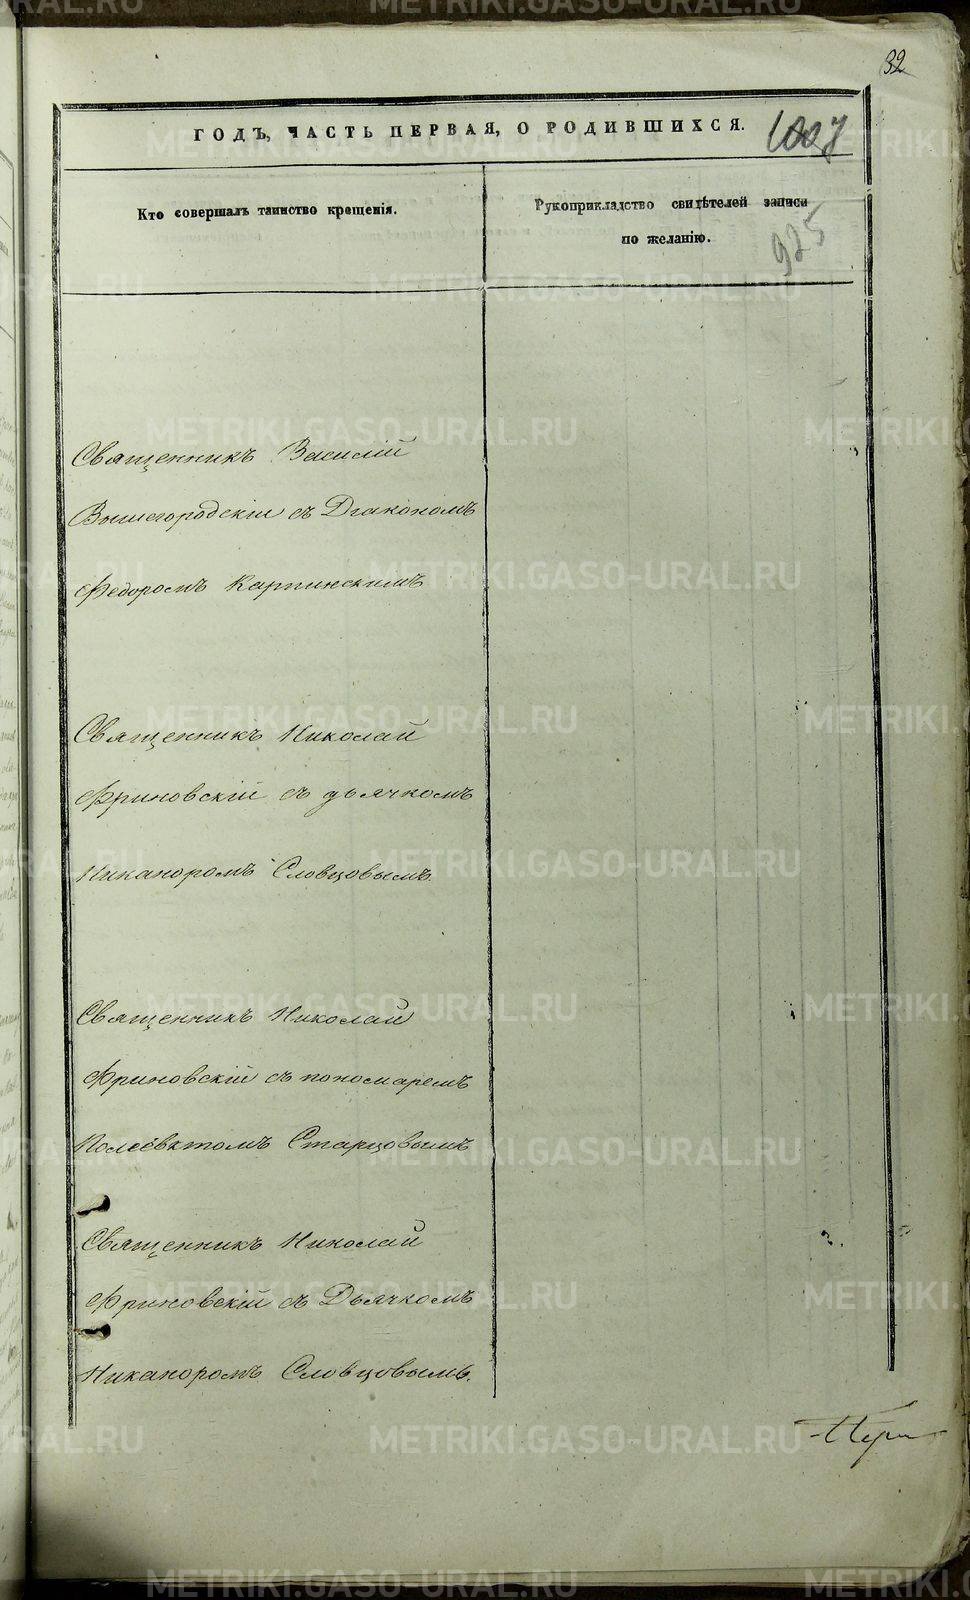 32
ГОДЪ, ЧАСТЬ ПЕРВАЯ, О РОДИВШИХСЯ.
1007
Кто совершалъ таинство крещенія.
Рукоприкладство свидѣтелей записи
по желанію.
925
Священникъ Василій
Вышегородскій съ Діакономъ
Федоромъ Карпинскимъ
Священникъ Николай
Фриновскій съ дьячкомъ
Никаноромъ Словцовымъ
Священникъ Николай
Фриновскій съ пономаремъ
Полеевктомъ Старцовымъ
Священникъ Николай
Фриновскій съ Дьячкомъ
Никаноромъ Словцовымъ.
METRIKI.GASO-URAL.RU